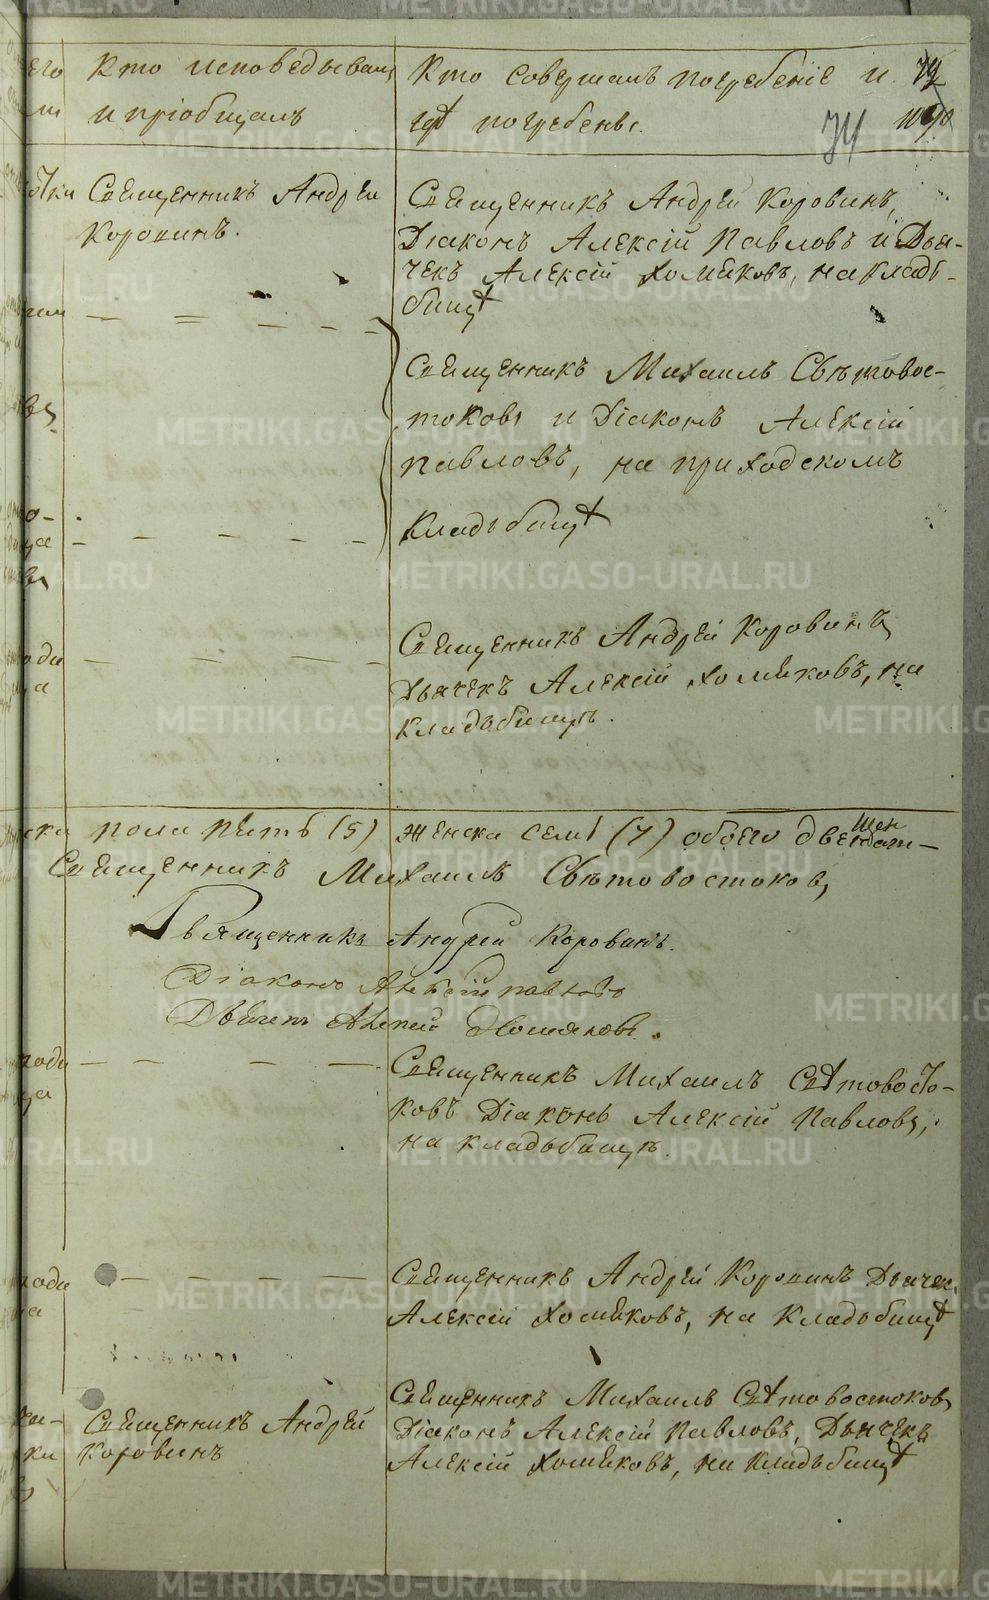 его Кто исповѣдывалъ Кто совершалъ погребеніе и
и пріобщалъ гдѣ погребены.
74
Священникъ Андрей
Коровинъ.
Священникъ Андрей Коровинъ,
Діаконъ Алексій Павловъ и Дья-
чекъ Алексій Хомяковъ, на кладъ-
бищѣ
Священникъ Михаилъ Свѣтовос-
токовъ и Діаконъ Алексій
Павловъ, на приходскомъ
кладъбищѣ
Священникъ Андрей Коровинъ,
Дьячекъ Алексій Хомяковъ, на
кладъбищѣ.
пола пять (5) женска семь (7) обоего двенат-
Священникъ Михаилъ Свѣтовостоковъ,
Священникъ Андрей Коровинъ.
Діаконъ Алексій Павловъ
Дьячекъ Алексей Хомяковъ.
Священникъ Михаилъ Свѣтовосто-
ковъ Діаконъ Алексій Павловъ,
на кладъбищѣ.
Священникъ Андрей Коровинъ Дьячек
Алексій Хомяковъ, на кладъбищѣ
Священникъ Андрей
Коровинъ
Священникъ Михаилъ Свѣтовостоковъ,
Діаконъ Алексій Павловъ, Дьячекъ
Алексій Хомяковъ, на кладъбищѣ
METRIKI.GASO-URAL.RU